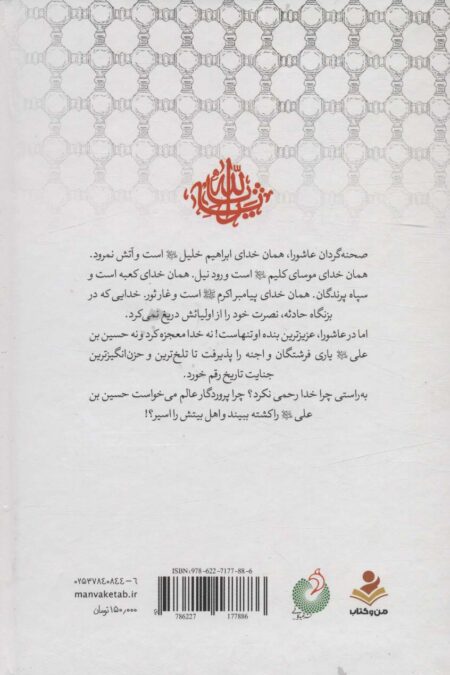 صحنه‌گردان عاشورا، همان خدای ابراهیم خلیل ﷺ است و آتش نمرود.
همان خدای موسای کلیم ﷺ است و رود نیل. همان خدای کعبه است و
سپاه پرندگان. همان خدای پیامبر اکرم ﷺ است و غار ثور. خدایی که در
بزنگاه حادثه، نصرت خود را از اولیائش دریغ نمی‌کرد.
اما در عاشورا، عزیزترین بنده او تنهاست! نه خدا معجزه کرد و نه حسین بن
علی ﷺ یاری فرشتگان و اجنه را پذیرفت تا تلخ‌ترین و حزن‌انگیزترین
جنایت تاریخ رقم خورد.
به راستی چرا خدا رحمی نکرد؟ چرا پروردگار عالم می‌خواست حسین بن
علی ﷺ را کشته ببیند و اهل بیتش را اسیر؟!
ISBN: 978-622-7177-88-6
9 786227 177886
۰۲۵۳۷۸۴۰۸۴۴-۶
manvaketab.ir
۱۵۰,۰۰۰ تومان
من و کتاب